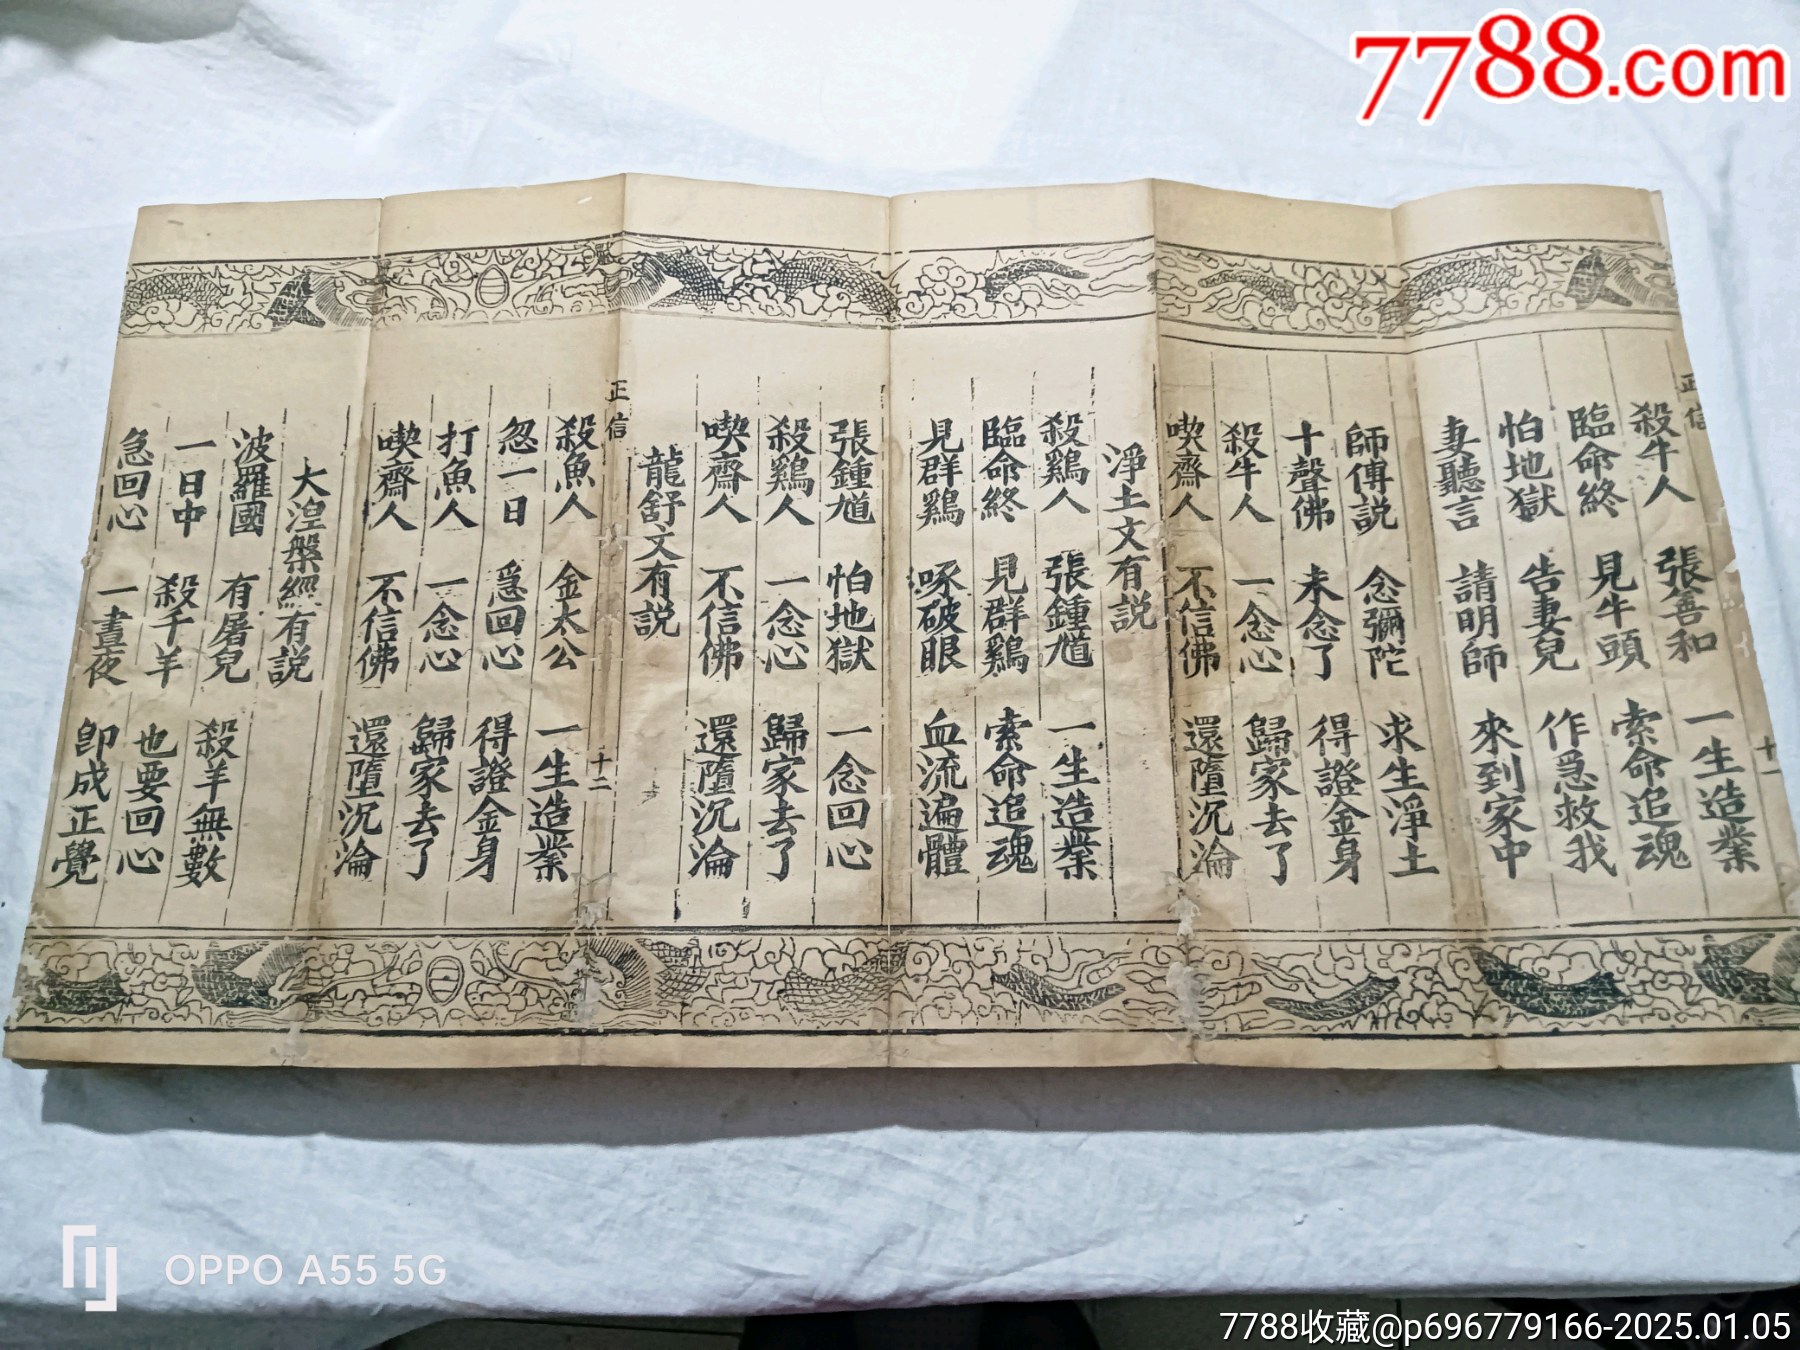 7788.com
正信
十一
殺牛人 張善和 一生造業
臨命終 見牛頭 索命追魂
怕地獄 告妻兒 作急救我
妻聽言 請明師 來到家中
師傅説 念彌陀 求生淨土
十聲佛 未念了 得證金身
殺牛人 一念心 歸家去了
喫齋人 不信佛 還墮沉淪
淨土文有説
殺鷄人 張鍾馗 一生造業
臨命終 見群鷄 索命追魂
見群鷄 啄破眼 血流遍體
張鍾馗 怕地獄 一念回心
殺鷄人 一念心 歸家去了
喫齋人 不信佛 還墮沉淪
龍舒文有説
正信
十二
殺魚人 金太公 一生造業
忽一日 急回心 得證金身
打魚人 一念心 歸家去了
喫齋人 不信佛 還墮沉淪
大涅槃經有説
波羅國 有屠兒 殺羊無數
一日中 殺千羊 也要回心
急回心 一晝夜 卽成正覺
OPPO A55 5G
7788收藏@p696779166-2025.01.05